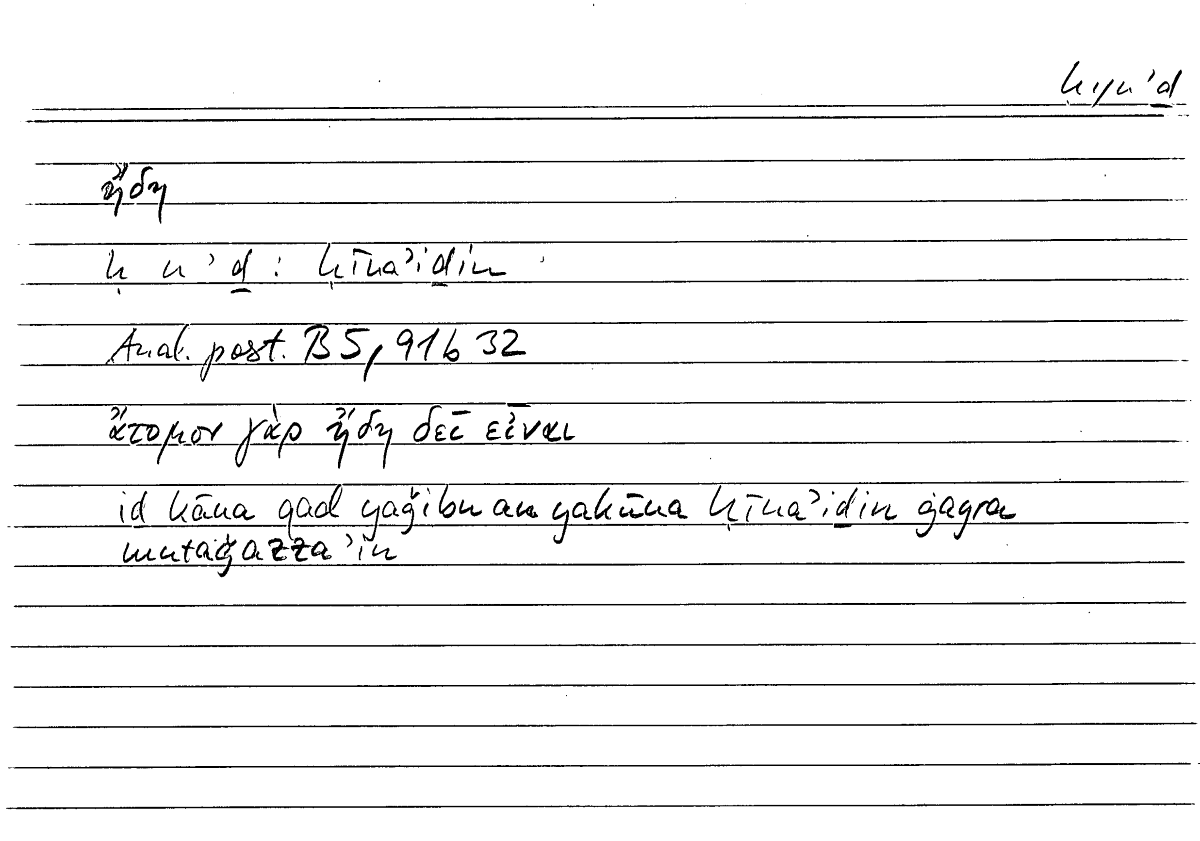 ḥynʾḏ
ἤδη
ḥ n ʾ ḏ : ḥīnaʾiḏin
Anal. post. B 5, 91 b 32
ἄτομον γὰρ ἤδη δεῖ εἶναι
id kāna qad yaǧibu an yakūna ḥīnaʾiḏin ġayra
mutaǧazzaʾin